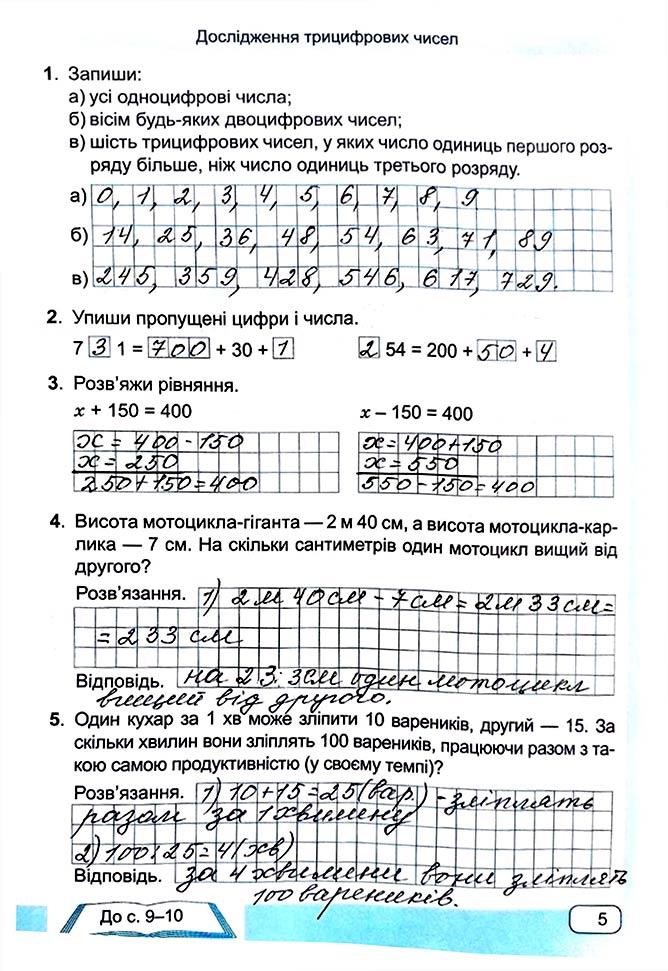 Дослідження трицифрових чисел
1. Запиши:
а) усі одноцифрові числа;
б) вісім будь-яких двоцифрових чисел;
в) шість трицифрових чисел, у яких число одиниць першого роз-
ряду більше, ніж число одиниць третього розряду.
а) 0, 1, 2, 3, 4, 5, 6, 7, 8, 9
б) 14, 25, 36, 48, 54, 63, 71, 89
в) 245, 359, 428, 546, 617, 729.
2. Упиши пропущені цифри і числа.
7 3 1 = 700 + 30 + 1 2 54 = 200 + 50 + 4
3. Розв'яжи рівняння.
x + 150 = 400 x – 150 = 400
x = 400 - 150 x = 400 + 150
x = 250 x = 550
250 + 150 = 400 550 - 150 = 400
4. Висота мотоцикла-гіганта — 2 м 40 см, а висота мотоцикла-кар-
лика — 7 см. На скільки сантиметрів один мотоцикл вищий від
другого?
Розв'язання. 1) 2 м 40 см - 7 см = 2 м 33 см =
= 233 см
Відповідь. на 233 см один мотоцикл
вищий від другого.
5. Один кухар за 1 хв може зліпити 10 вареників, другий — 15. За
скільки хвилин вони зліплять 100 вареників, працюючи разом з та-
кою самою продуктивністю (у своєму темпі)?
Розв'язання. 1) 10 + 15 = 25 (вар.) - зліплять
разом за 1 хвилину
2) 100 : 25 = 4 (хв)
Відповідь. за 4 хвилини вони зліплять
100 вареників.
До с. 9–10 5